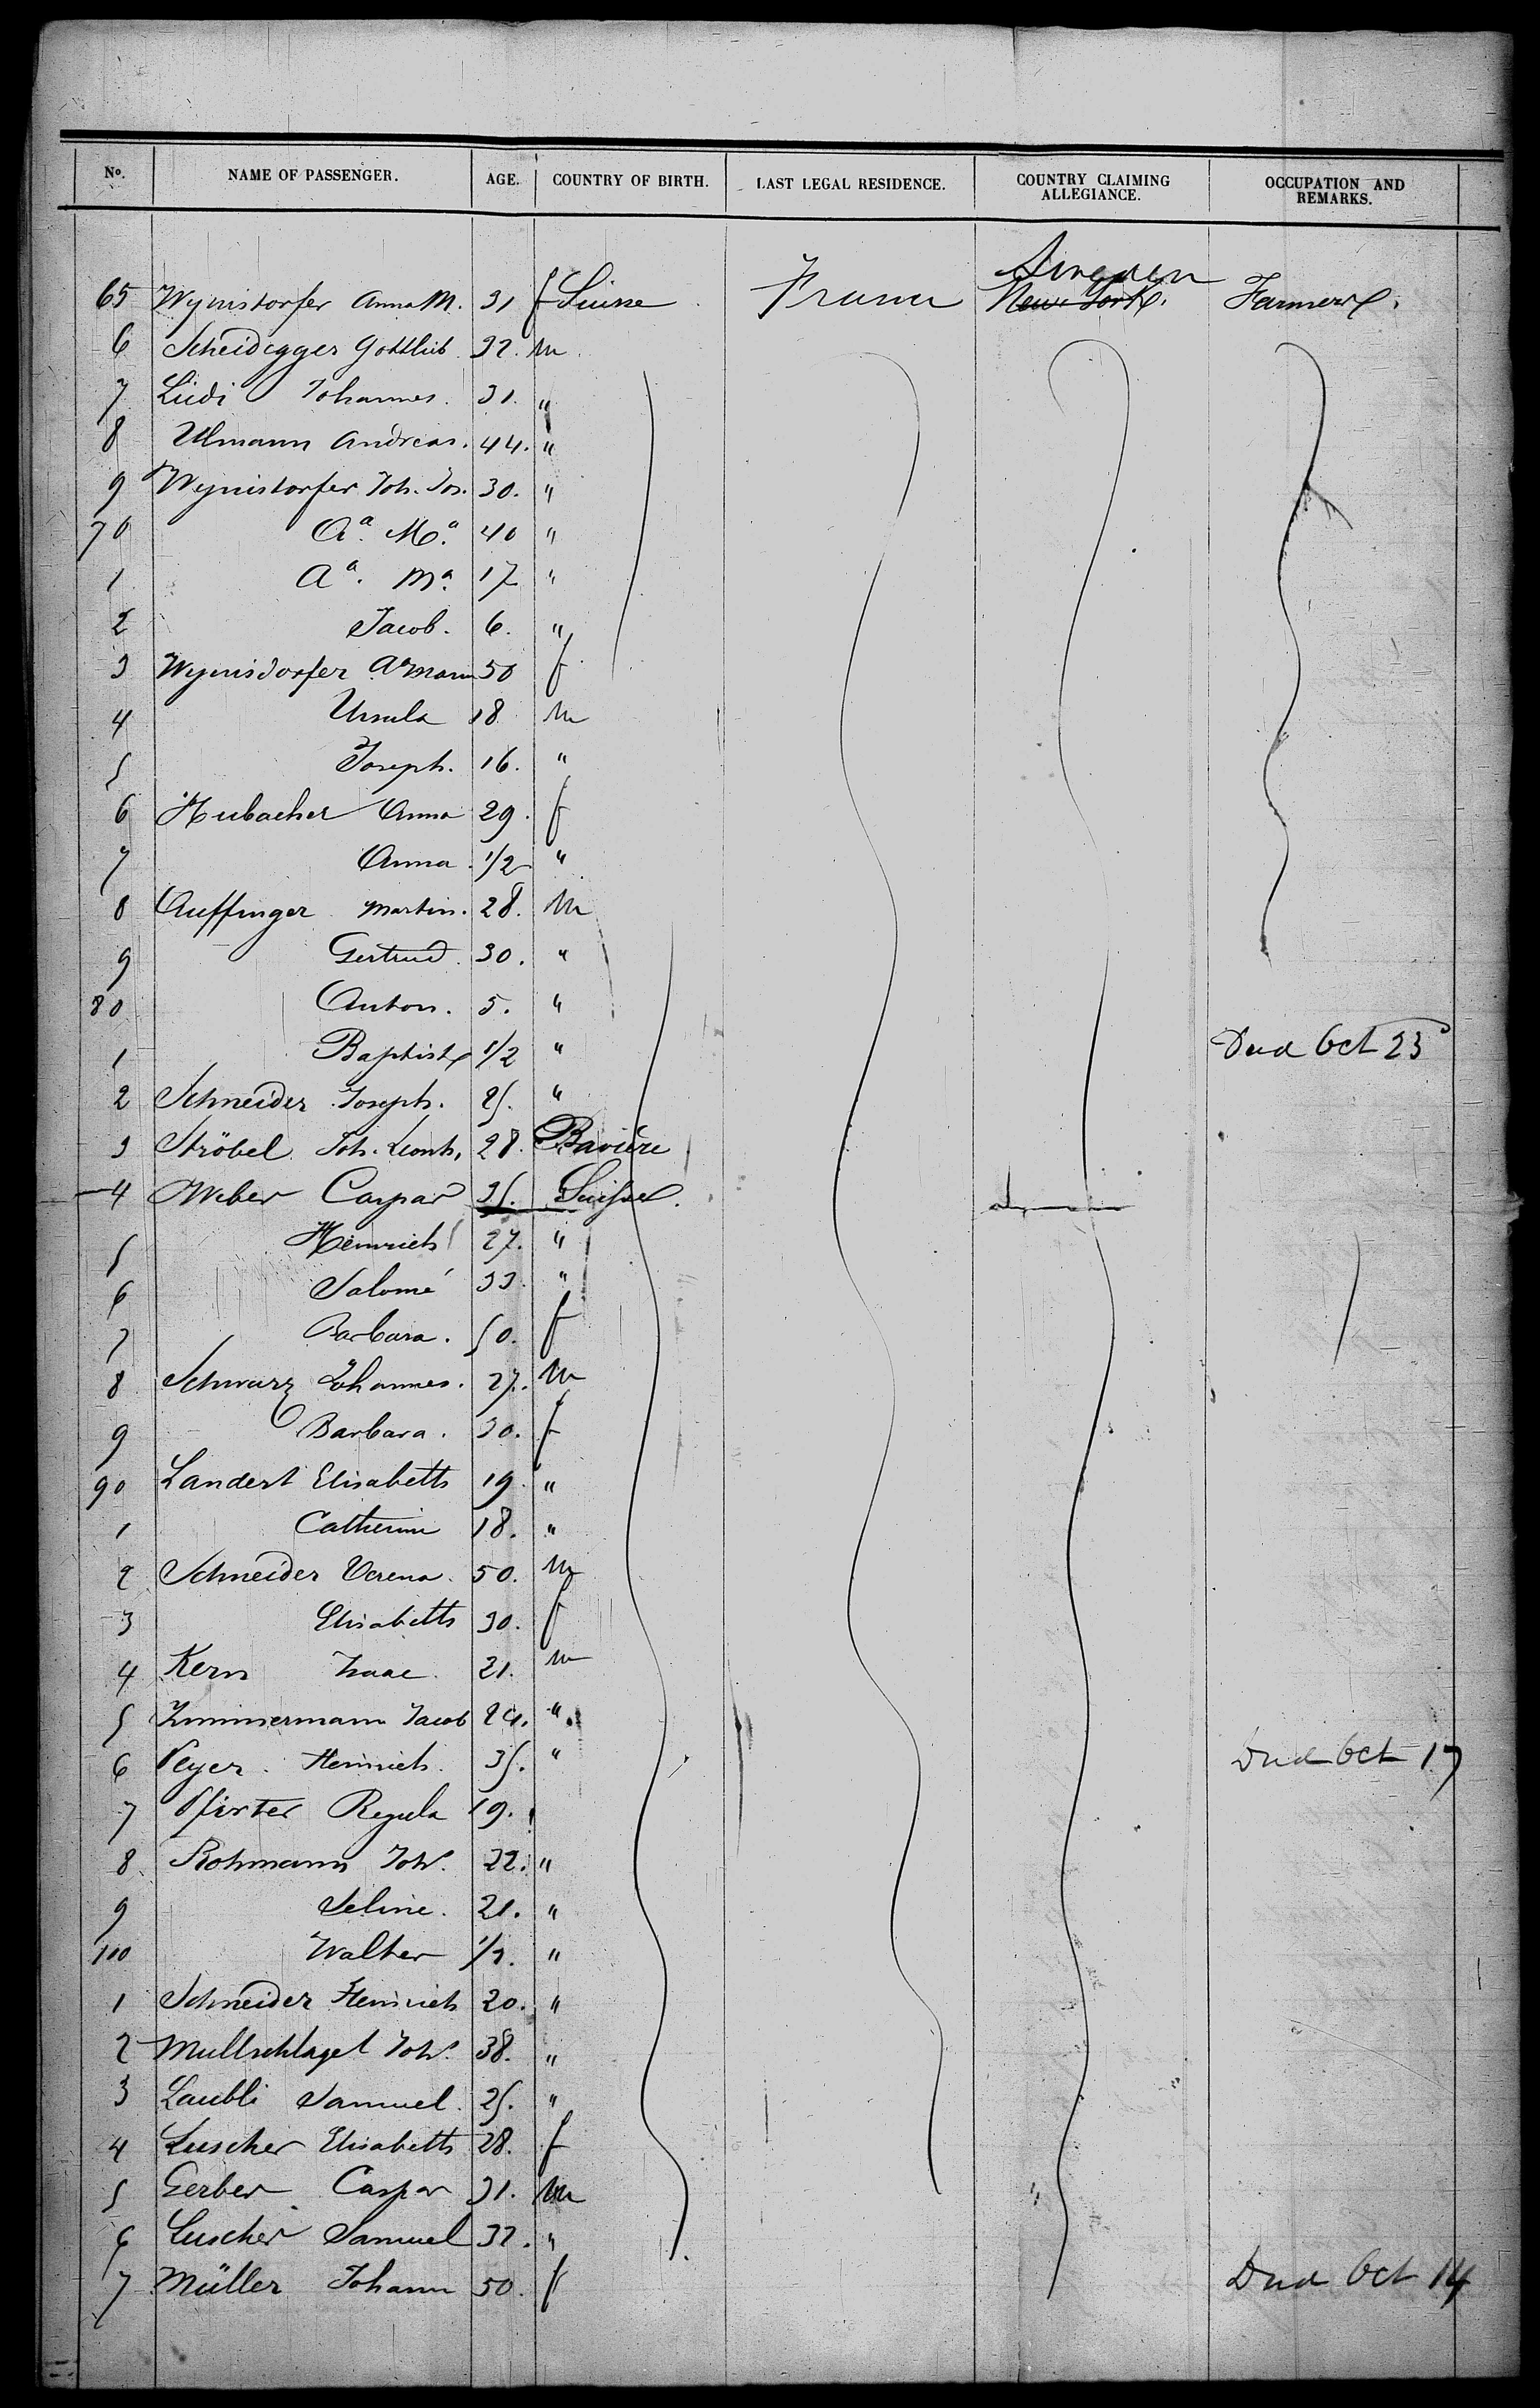 No. NAME OF PASSENGER. AGE. COUNTRY OF BIRTH. LAST LEGAL RESIDENCE. COUNTRY CLAIMING ALLEGIANCE. OCCUPATION AND REMARKS.
Sweden
65 Wynistorfer Anna M. 31 f Suisse France New York. Farmer
6 Scheidegger Gottlieb 32. m
7 Lüdi Johannes. 31. "
8 Ulmann Andreas. 44. "
9 Wynistorfer Joh. Jos. 30. "
70 Aa. Ma. 40 "
1 Aa. Ma. 17 "
2 Jacob. 6. "
3 Wynisdorfer Aa Maria 50 f
4 Ursula 18 m
5 Joseph. 16. "
6 Hubacher Anna 29. f
7 Anna 1/2 "
8 Auffinger Martin. 28. m
9 Gertrud. 30. "
80 Anton. 5. "
1 Baptist 1/2 " Died Oct 23
2 Schneider Joseph. 25. "
3 Ströbel Joh. Leonh. 28. Bavière
4 Weber Caspar 35. Suisse.
5 Heinrich 27. "
6 Salomé 33. "
7 Barbara. 50. f
8 Schwarz Johannes. 27. m
9 Barbara. 30. f
90 Landert Elisabeth 19. "
1 Catherine 18. "
2 Schneider Verena. 50. m
3 Elisabeth 30. f
4 Kern Isaac. 21. m
5 Zimmermann Jacob 24. "
6 Peyer. Heinrich. 35. " Died Oct 17
7 Pfister Regula 19.
8 Rohmann Joh. 22. "
9 Seline. 21. "
100 Walter 1/2. "
1 Schneider Heinrich 20. "
2 Mullschlagel Joh. 38. "
3 Laubli Samuel. 25. "
4 Luscher Elisabeth 28. f
5 Gerber Caspar 31. m
6 Luscher Samuel 32. "
7 Müller Johann 50. f Died Oct 14